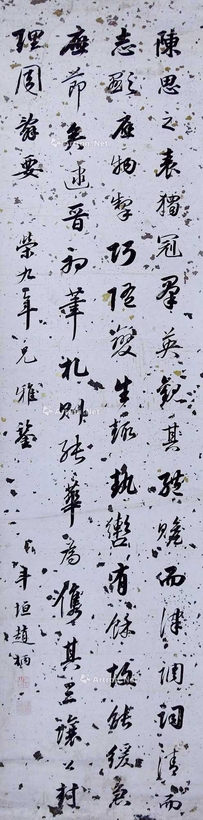 陳思之表獨冠羣英觀其體贍而律調詞清而
志顯應物製巧隨變生趣執轡有餘故能緩急
應節矣逮晉初筆札則張華為儁其三讓公封
理周辭要 榮九年兄雅鑒 垣趙